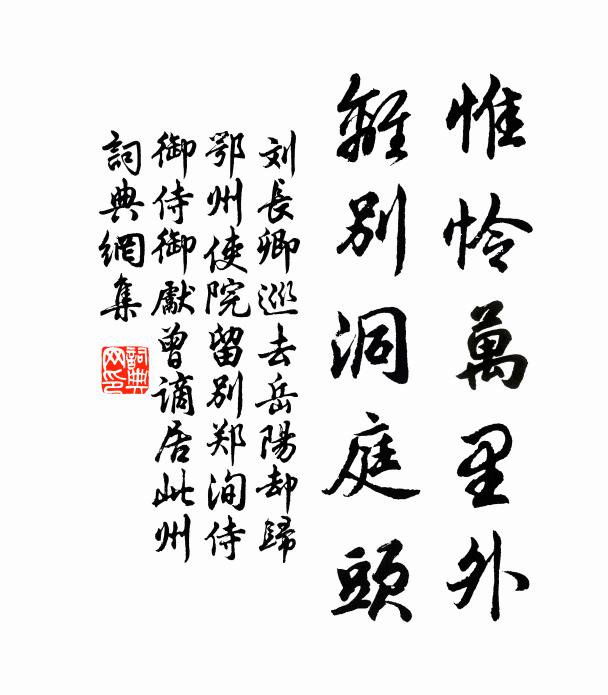 惟怜萬里外
離別洞庭頭
刘長卿巡去岳陽却歸
鄂州使院留別郑洵侍
御侍御獻曾谪居此州
詞典網集
詞典
网印